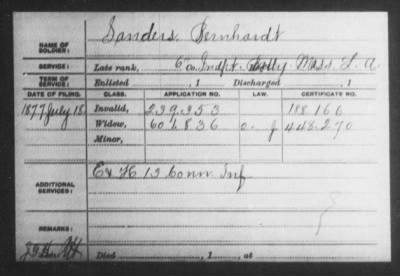 NAME OF SOLDIER: Sanders, Bernhardt
SERVICE: Late rank, 6" Co. Indpt. Btty. Mass. L. A.
TERM OF SERVICE: Enlisted , 1 Discharged , 1
DATE OF FILING. CLASS. APPLICATION NO. LAW. CERTIFICATE NO.
1877 July 18 Invalid, 239.353 188166
Widow, 601.836 448.270
Minor,
ADDITIONAL SERVICES: E & K 13 Conn Inf
REMARKS:
Died , 1 , at